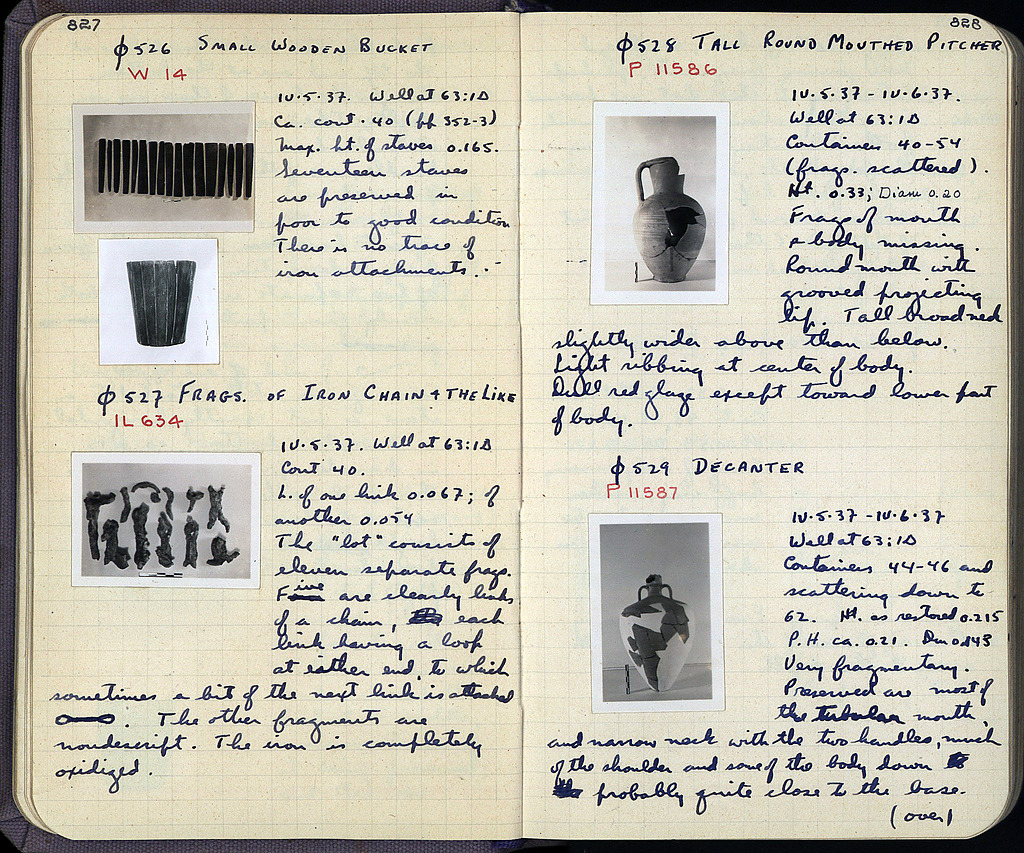 827
ϕ526 SMALL WOODEN BUCKET
W 14
IV.5.37. Well at 63:1Δ
Ca. cont. 40 (pp 352-3)
Max. ht. of staves 0.165.
Seventeen staves
are preserved in
poor to good condition
There is no trace of
iron attachments.
ϕ527 FRAGS. OF IRON CHAIN & THE LIKE
IL 634
IV.5.37. Well at 63:1Δ
Cont 40.
L. of one link 0.067; of
another 0.054
The "lot" consists of
eleven separate frags.
Five are clearly links
of a chain, each
link having a loop
at either end, to which
sometimes a bit of the next link is attached
. The other fragments are
nondescript. The iron is completely
oxidized.
828
ϕ528 TALL ROUND MOUTHED PITCHER
P 11586
IV.5.37 - IV.6.37.
Well at 63:1Δ
Containers 40-54
(frags. scattered).
Ht. 0.33; Diam 0.20
Frags of mouth
& body missing.
Round mouth with
grooved projecting
lip. Tall broad neck
slightly wider above than below.
Light ribbing at center of body.
Dull red glaze except toward lower part
of body.
ϕ529 DECANTER
P 11587
IV.5.37 - IV.6.37
Well at 63:1Δ
Containers 44-46 and
scattering down to
62. Ht. as restored 0.215
P.H. ca. 0.21. Dm 0.143
Very fragmentary.
Preserved are most of
the tubular mouth,
and narrow neck with the two handles, much
of the shoulder and some of the body down
probably quite close to the base.
(over)